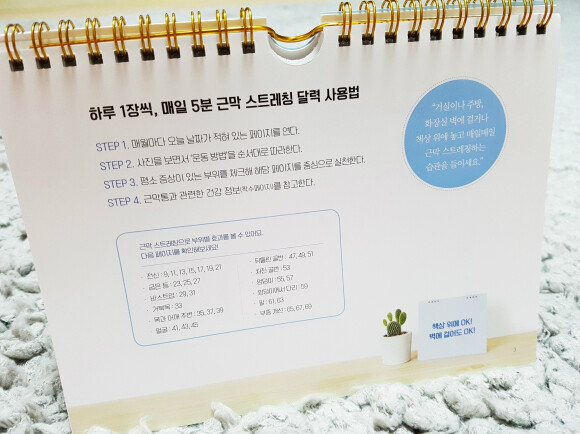 하루 1장씩, 매일 5분 근막 스트레칭 달력 사용법
STEP 1. 매월마다 오늘 날짜가 적혀 있는 페이지를 연다.
STEP 2. 사진을 보면서 '운동 방법'을 순서대로 따라한다.
STEP 3. 평소 증상이 있는 부위를 체크해 해당 페이지를 중심으로 실천한다.
STEP 4. 근막통과 관련한 건강 정보(짝수페이지)를 참고한다.
"거실이나 주방,
화장실 벽에 걸거나
책상 위에 놓고 매일매일
근막 스트레칭하는
습관을 들이세요."
근막 스트레칭으로 부위별 효과를 볼 수 있어요.
다음 페이지를 확인해보세요!
· 전신 : 9, 11, 13, 15, 17, 19, 21
· 굽은 등 : 23, 25, 27
· 바스트업 : 29, 31
· 거북목 : 33
· 목과 어깨 주변 : 35, 37, 39
· 얼굴 : 41, 43, 45
· 뒤틀린 골반 : 47, 49, 51
· 처진 골반 : 53
· 엉덩이 : 55, 57
· 엉덩이에서 다리 : 59
· 팔 : 61, 63
· 부종 개선 : 65, 67, 69
책상 위에 OK!
벽에 걸어도 OK!